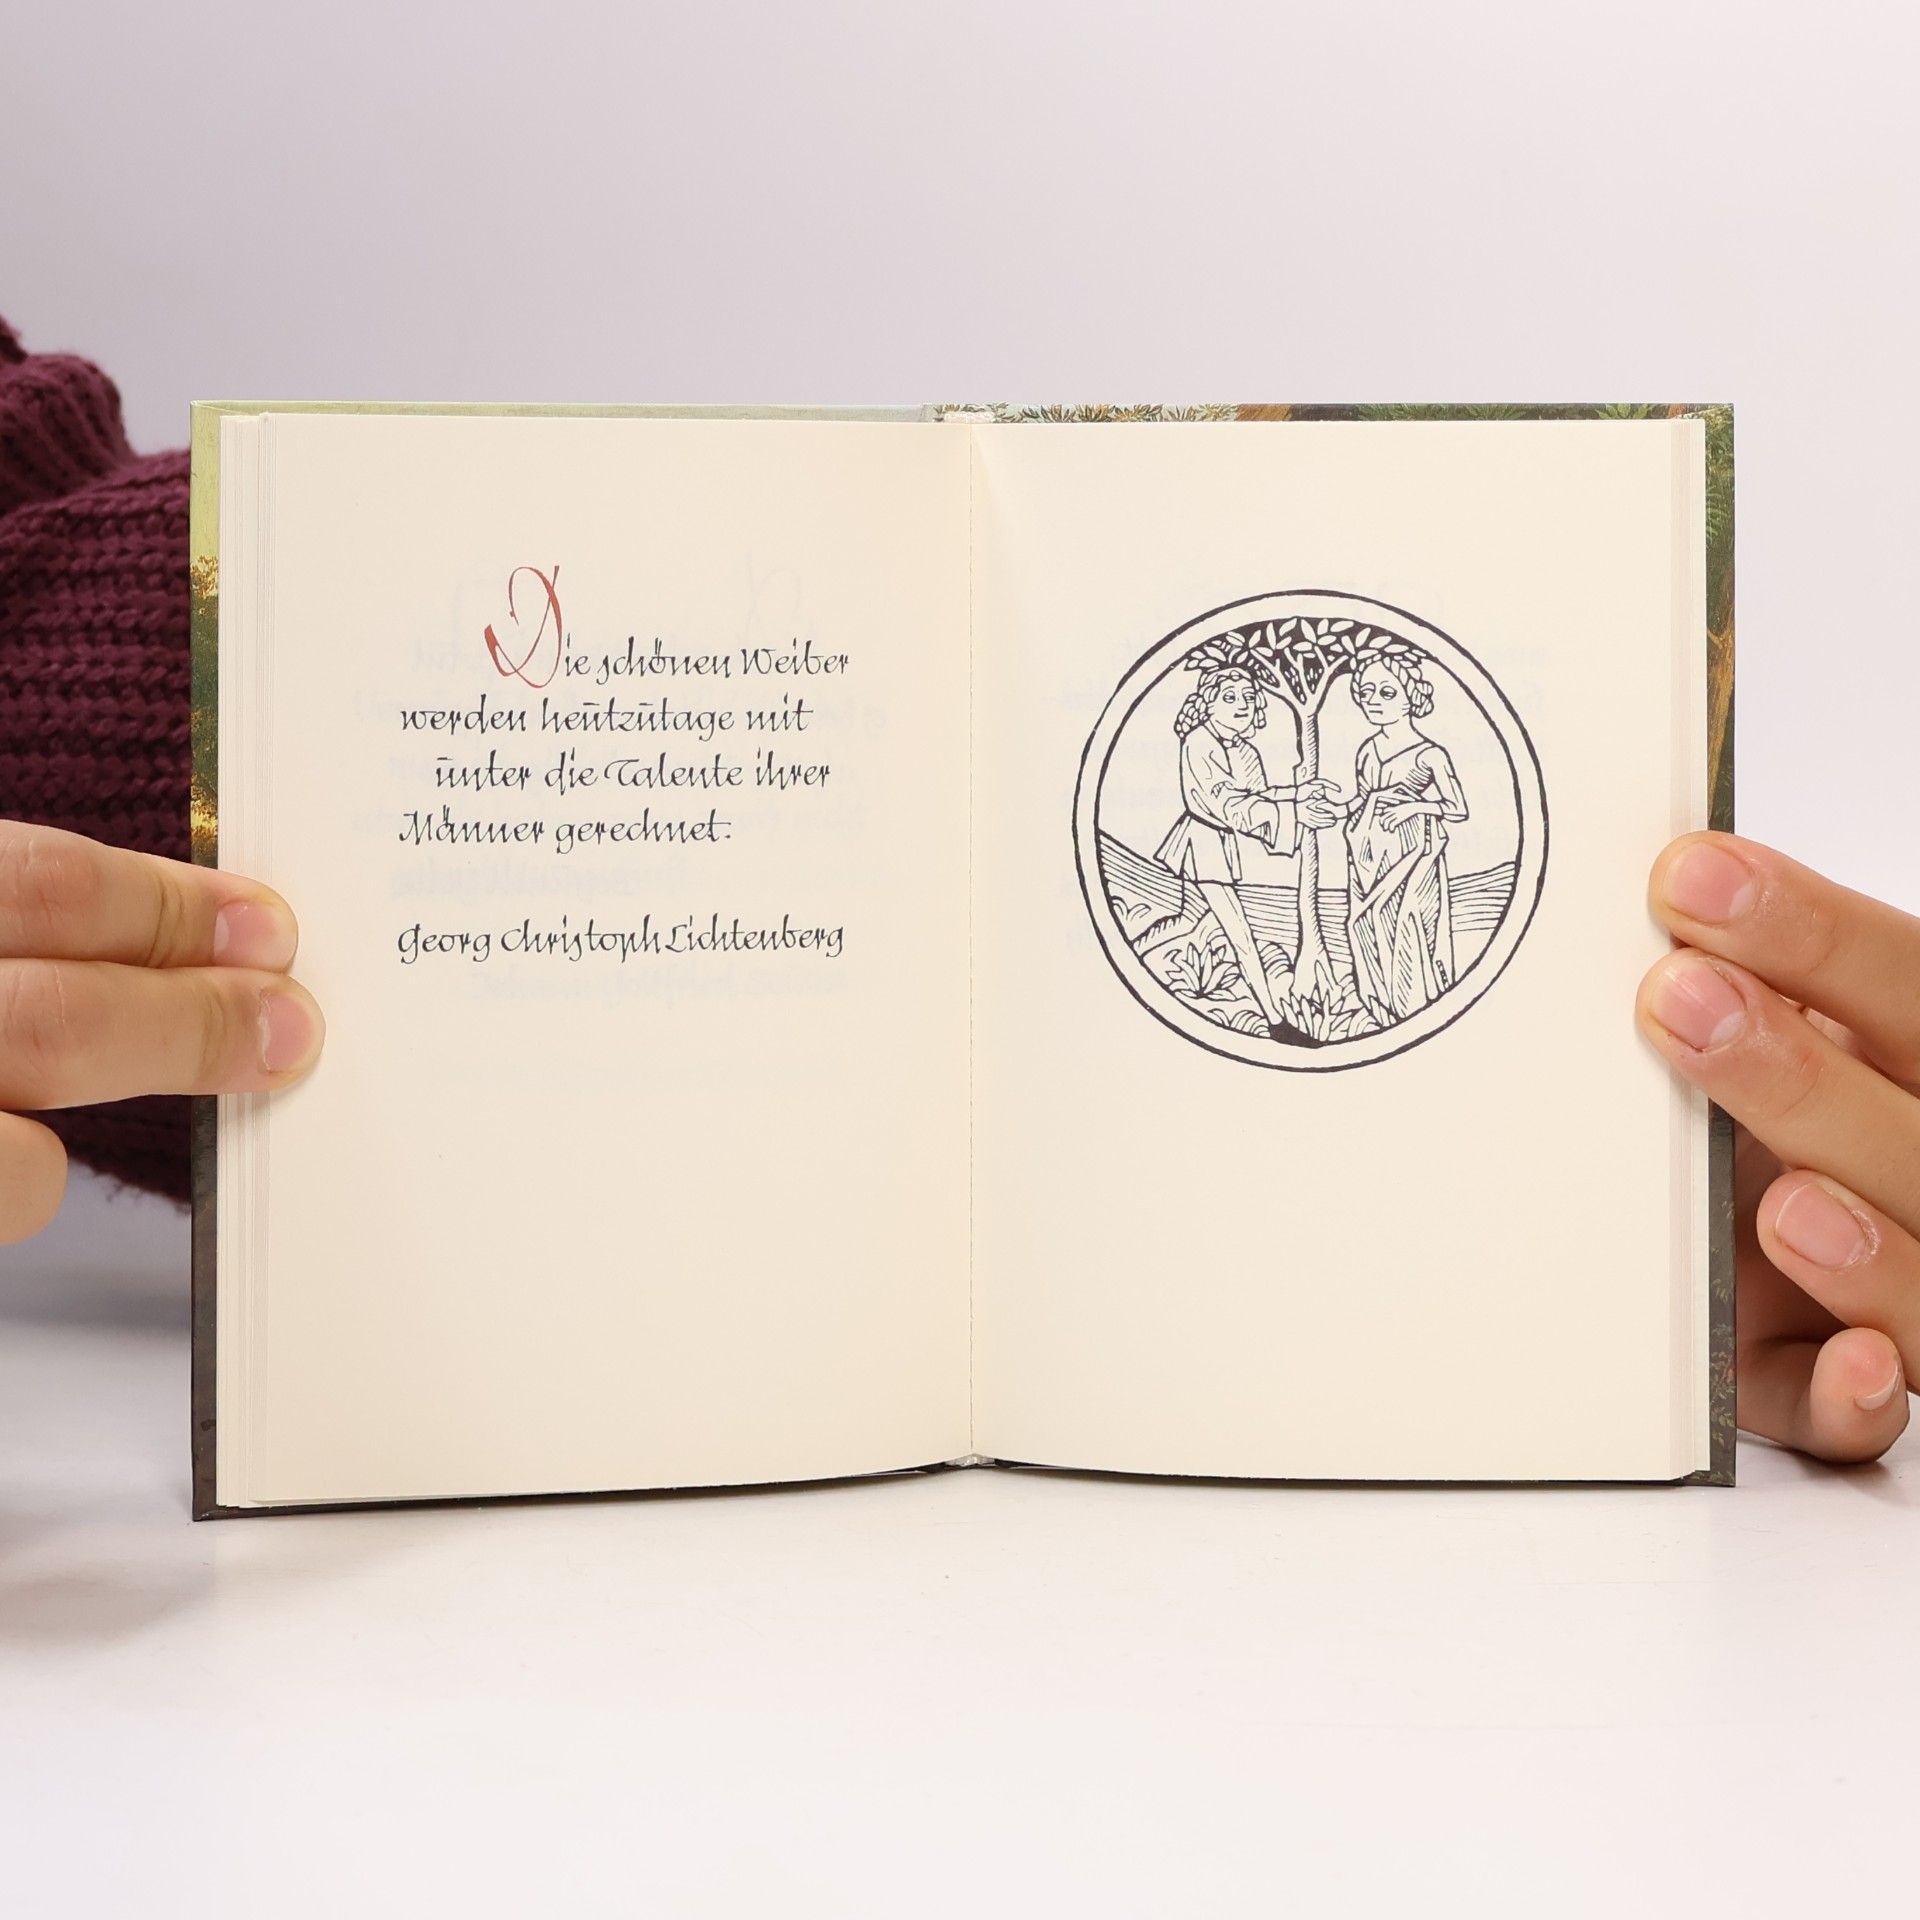 Die schönen Weiber
werden heutzutage mit
unter die Talente ihrer
Männer gerechnet.
Georg Christoph Lichtenberg